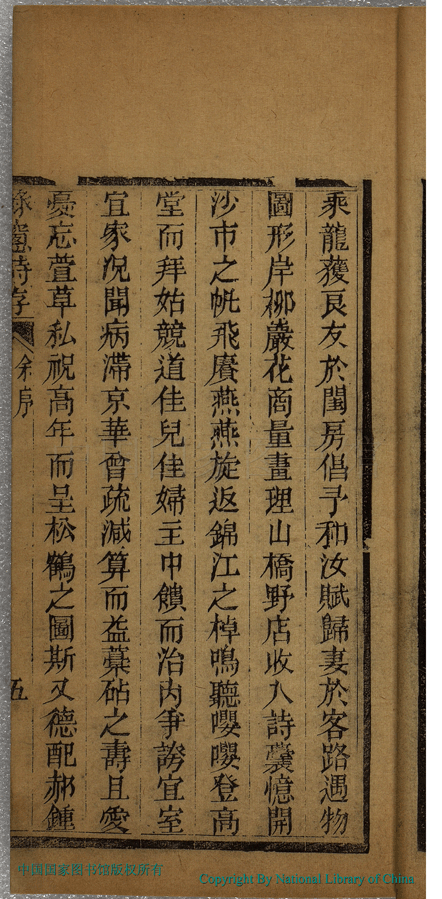 乘龍獲良友於閨房倡予和汝賦歸妻於客路遇物
圖形岸柳巖花商量畫理山橋野店收入詩囊憶開
沙市之帆飛賡燕燕旋返錦江之棹鳴聽嚶嚶登高
堂而拜姑競道佳兒佳婦主中饋而治內爭誇宜室
宜家况聞病滯京華曾疏減算而益藁砧之壽且愛
憂忘萱草私祝高年而呈松鶴之圖斯又德配郝鍾
詩存
余序
五
中国国家图书馆版权所有
Copyright By National Library of China